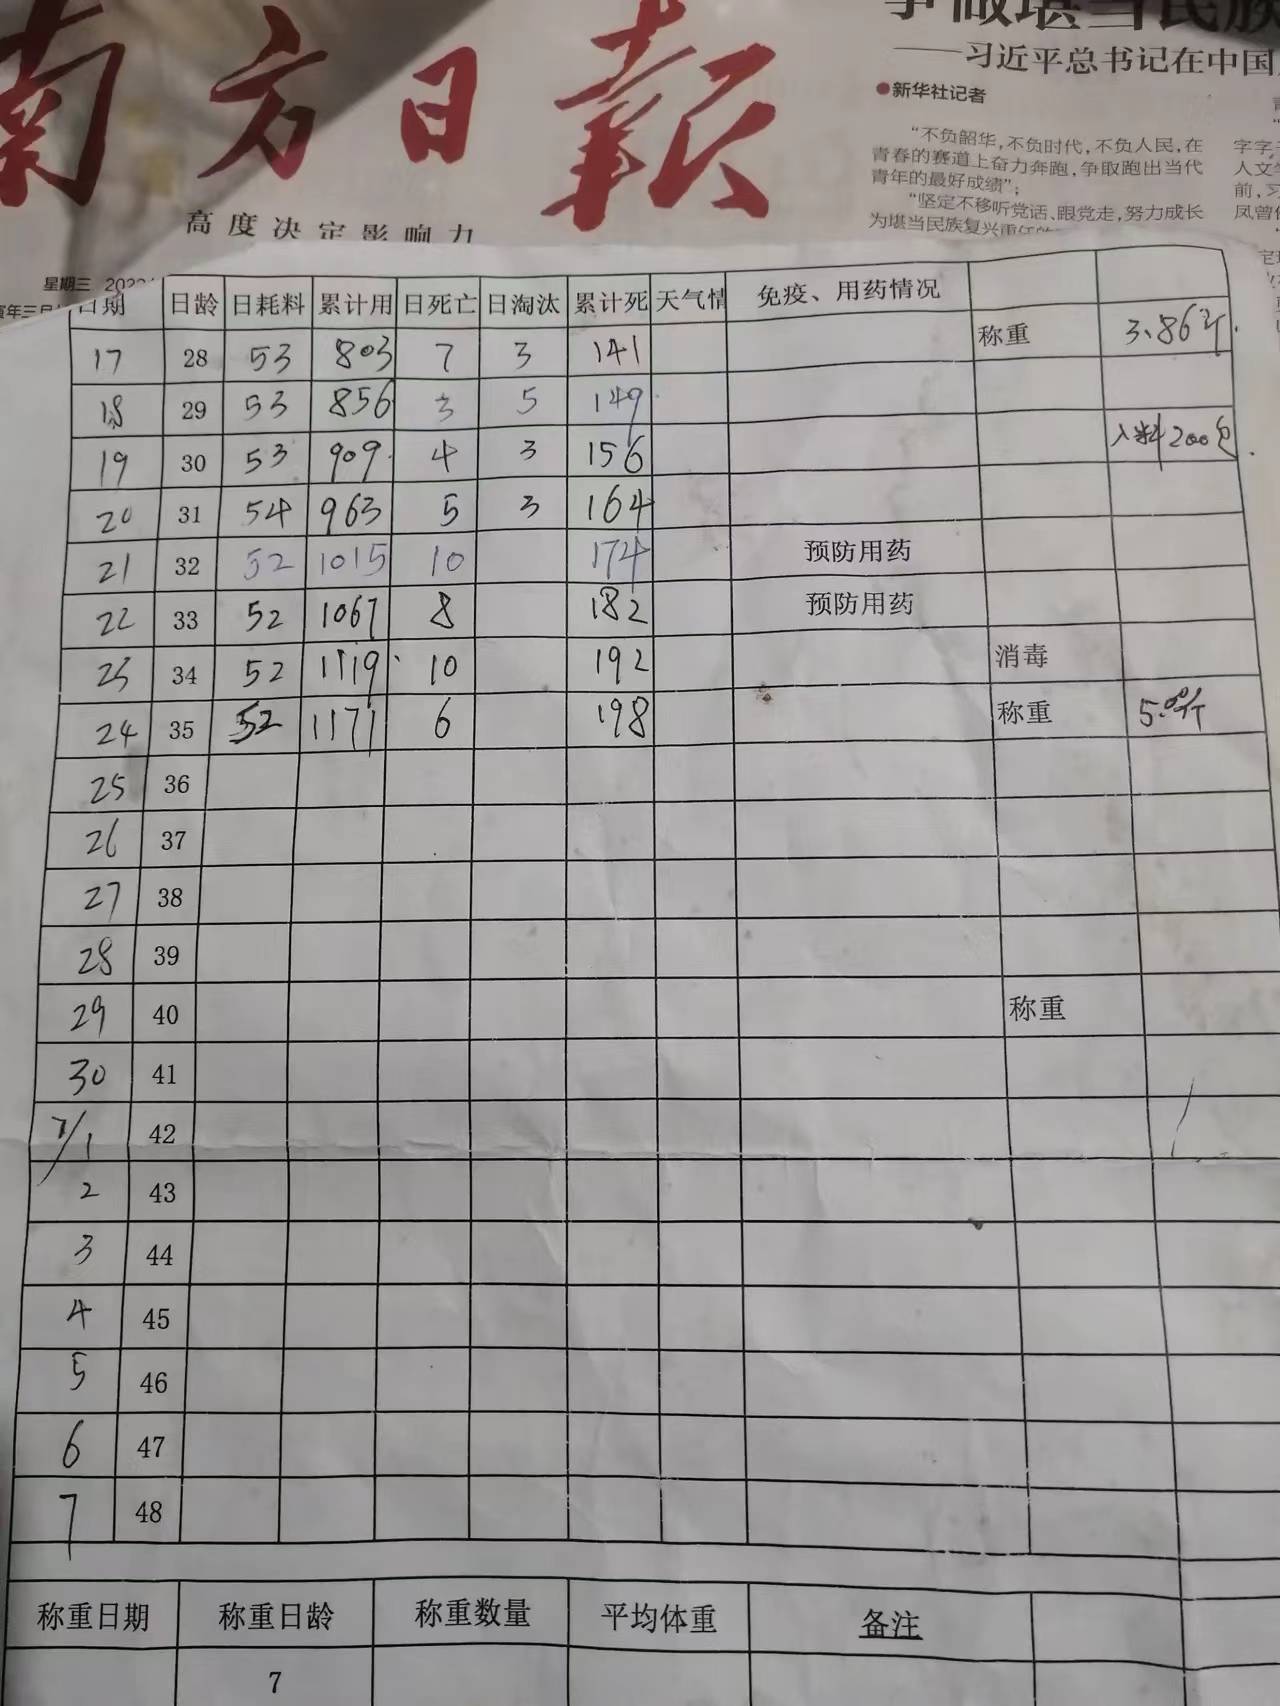 南方日报
高度决定影响力
——习近平总书记在中国
●新华社记者
“不负韶华,不负时代,不负人民,在
青春的赛道上奋力奔跑,争取跑出当代
青年的最好成绩”;
“坚定不移听党话、跟党走,努力成长
字字
人文
前,习
星期三
日期 日龄 日耗料 累计用 日死亡 日淘汰 累计死 天气情 免疫、用药情况
17 28 53 803 7 3 141 称重 3.86斤.
18 29 53 856 3 5 149
19 30 53 909 4 3 156 入料200包.
20 31 54 963 5 3 164
21 32 52 1015 10 174 预防用药
22 33 52 1067 8 182 预防用药
23 34 52 1119 10 192 消毒
24 35 52 1171 6 198 称重 5.00斤
25 36
26 37
27 38
28 39
29 40 称重
30 41
7/1 42
2 43
3 44
4 45
5 46
6 47
7 48
称重日期 称重日龄 称重数量 平均体重 备注
7